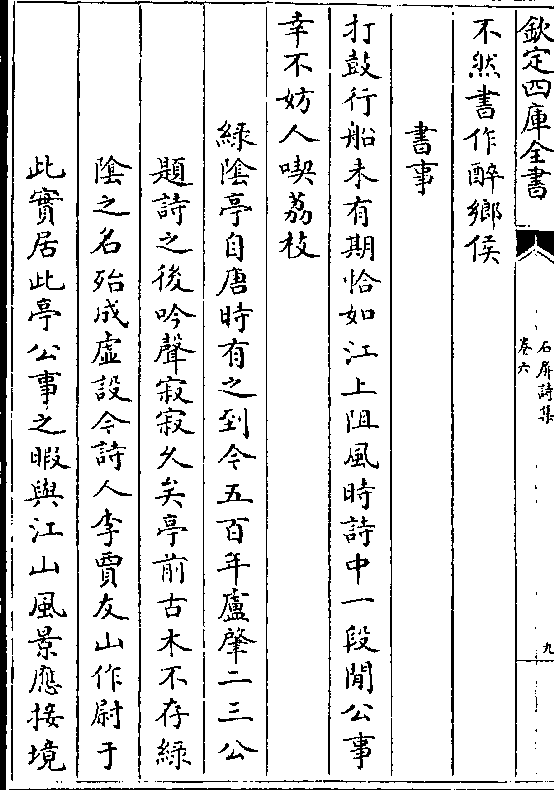 欽定四庫全書
石屏詩集
卷六
九
不然書作醉鄉侯
書事
打鼓行船未有期恰如江上阻風時詩中一段閒公事
幸不妨人喫荔枝
綠陰亭自唐時有之到今五百年盧肇二三公
題詩之後吟聲寂寂久矣亭前古木不存綠
陰之名殆成虛設今詩人李賈友山作尉于
此實居此亭公事之暇與江山風景應接境